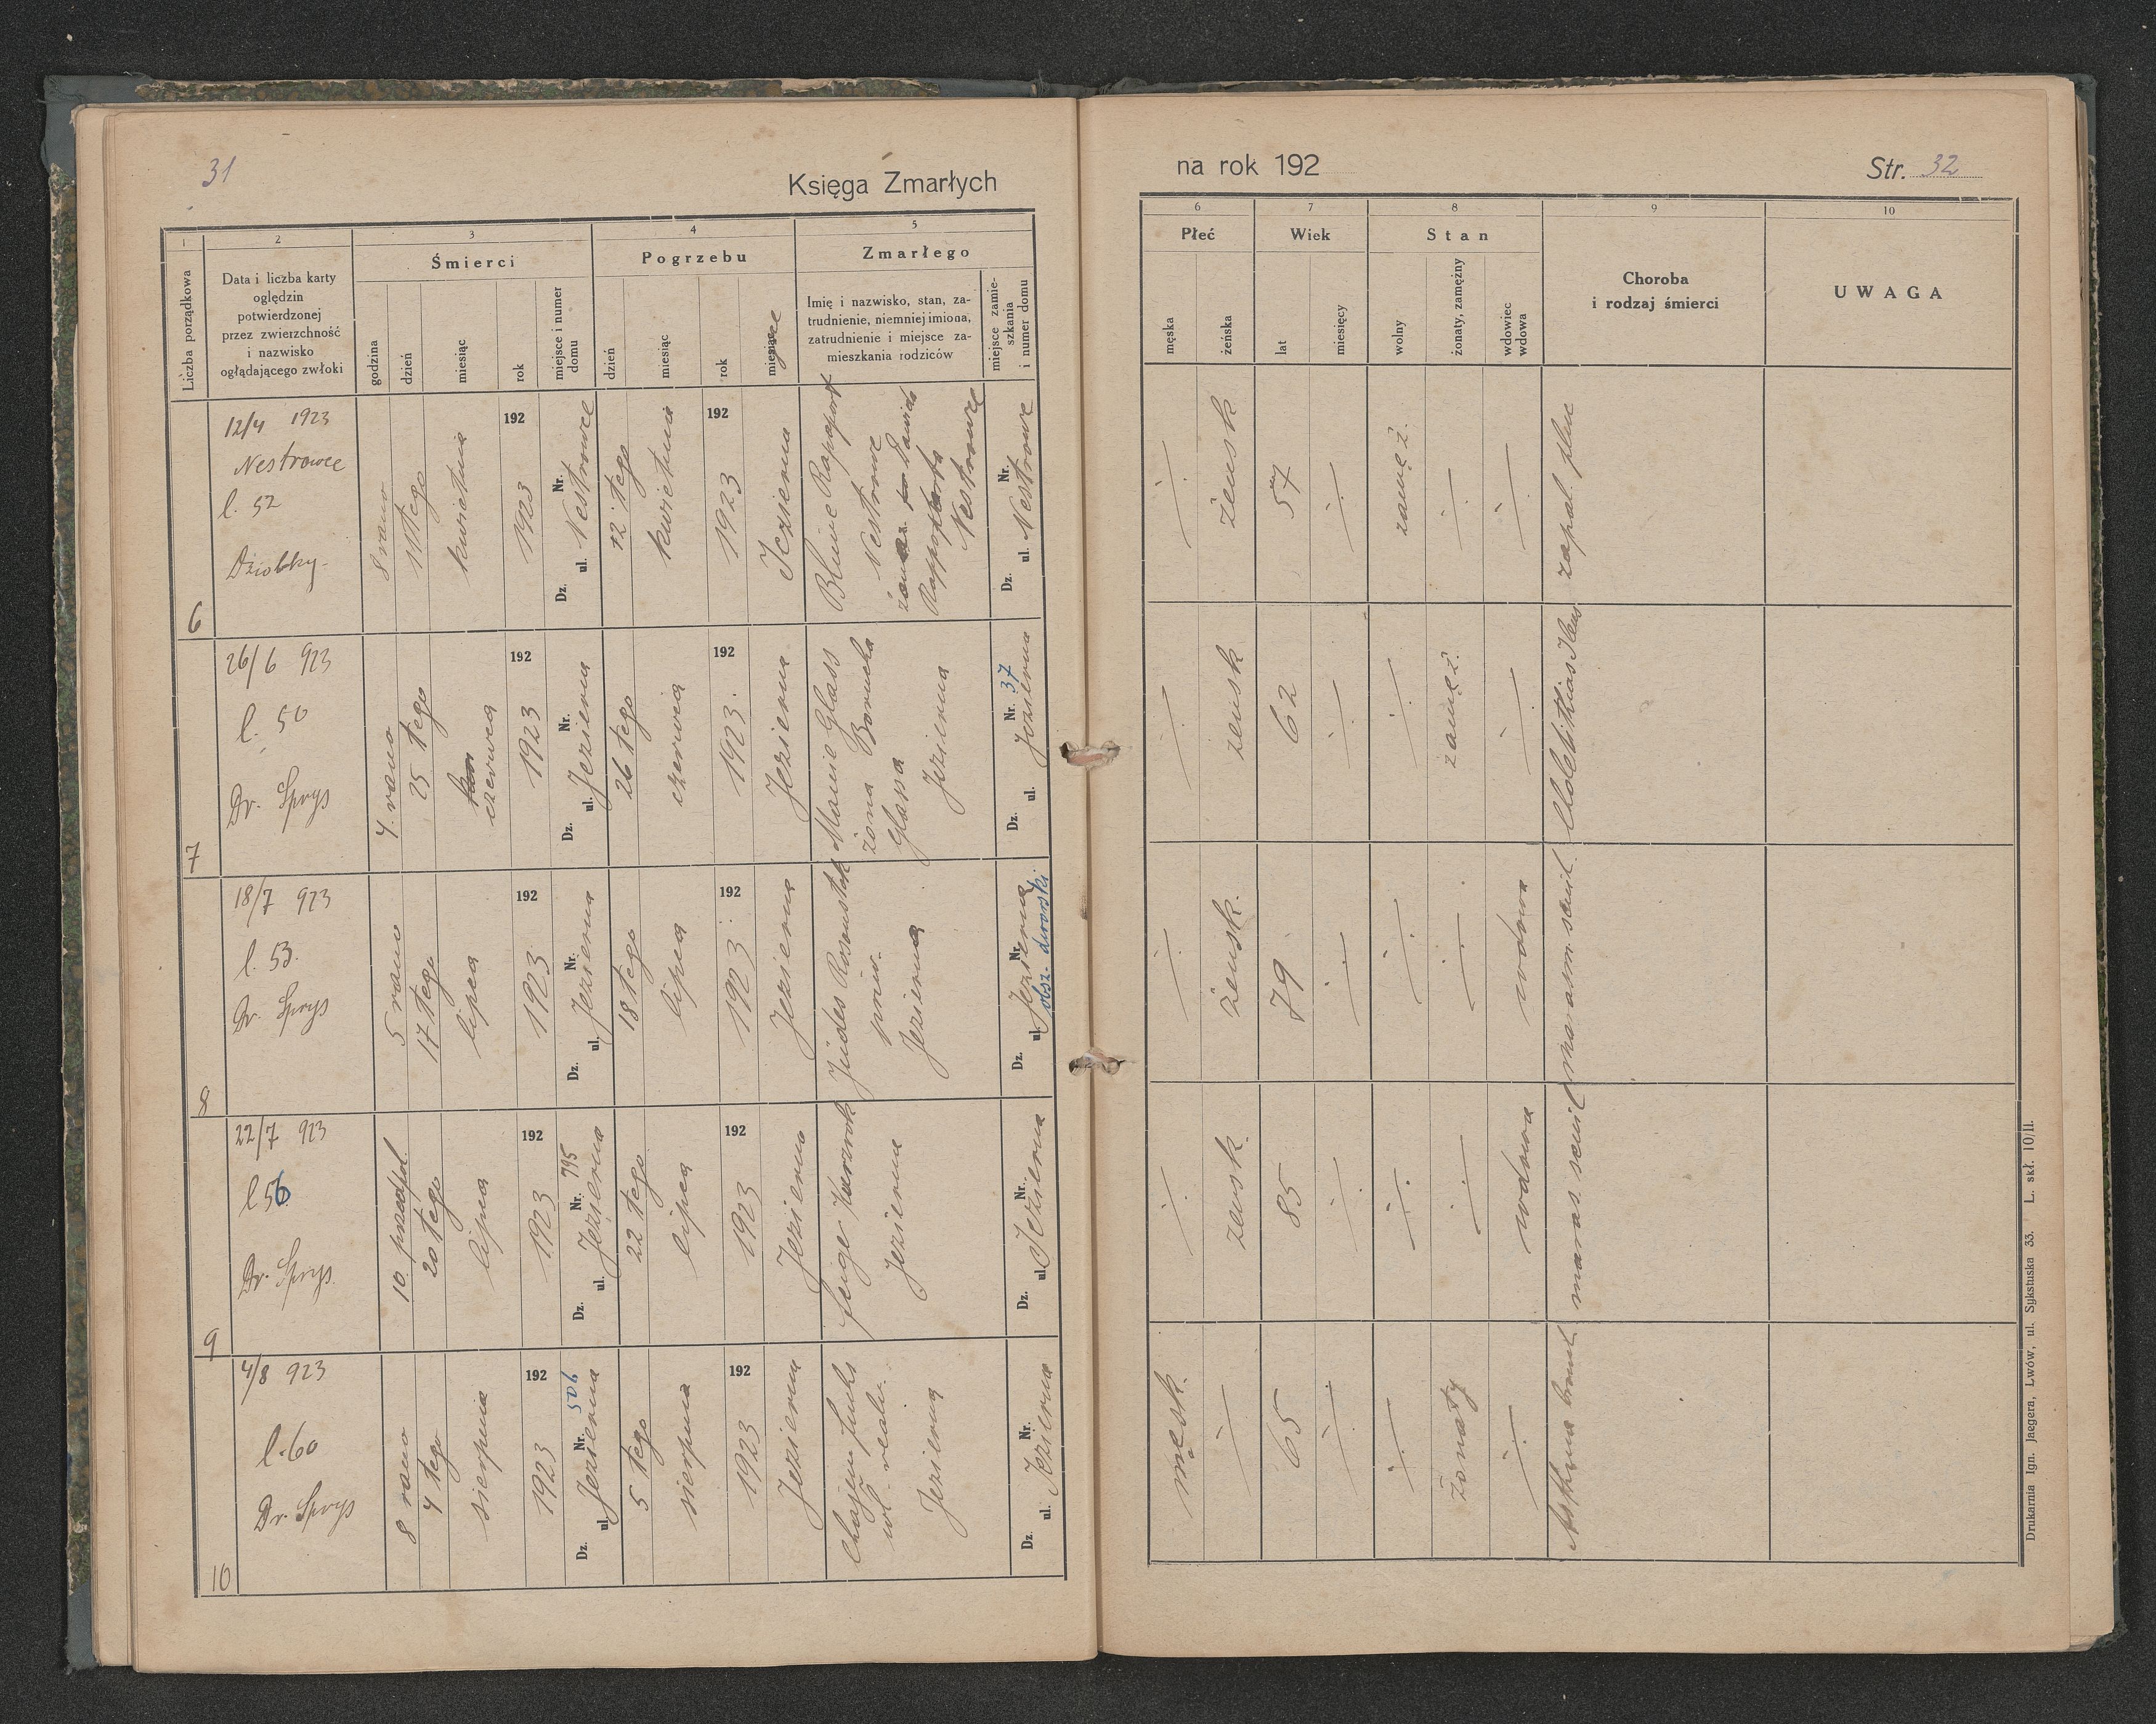 31
Księga Zmarłych
na rok 192
Str. 32
1
2
3
4
5
6
7
8
9
10
Liczba porządkowa
Data i liczba karty
oględzin
potwierdzonej
przez zwierzchność
i nazwisko
ogłądającego zwłoki
Śmierci
godzina
dzień
miesiąc
rok
miejsce i numer
domu
Pogrzebu
dzień
miesiąc
rok
miejsce
Zmarłego
Imię i nazwisko, stan, za-
trudnienie, niemniej imiona,
zatrudnienie i miejsce za-
mieszkania rodziców
miejsce zamie-
szkania
i numer domu
Płeć
męska
żeńska
Wiek
lat
miesięcy
Stan
wolny
żonaty, zamężny
wdowiec
wdowa
Choroba
i rodzaj śmierci
UWAGA
6
12/4 1923
Nestrowce
l. 52
8 rano
11 tego
kwietnia
192
1923
Dz. ul. Nr.
Nestrowce
12 tego
kwietnia
192
1923
Jezierna
Bluwe Rapaport
Nestrowce
żona Dawida
Rappaporta
Nestrowce
Dz. ul. Nr.
Nestrowce
żeńsk
57
zamęż.
zapal. płuc
7
26/6 923
l. 50
Dr. Sprys
4 rano
25 tego
czerwca
192
1923
Dz. ul. Nr.
Jezierna
26 tego
czerwca
192
1923
Jezierna
Manie Glass
żona Borucha
Glassa
Jezierna
Dz. ul. Nr. 37
Jezierna
żeńsk
62
zamęż.
8
18/7 923
l. 53.
Dr. Sprys
5 rano
17 tego
lipca
192
1923
Dz. ul. Nr.
Jezierna
18 tego
lipca
192
1923
Jezierna
Jüdes
Jezierna
Dz. ul. Nr.
Jezierna
obsz. dworski.
żeńsk.
79
wdowa
marasm. senil.
9
22/7 923
l 56
Dr. Sprys.
10. przedpoł.
20 tego
lipca
192
1923
Dz. ul. Nr. 795
Jezierna
22 tego
lipca
192
1923
Jezierna
Feige
Jezierna
Dz. ul. Nr.
Jezierna
żeńsk.
85
wdowa
maras. senil
10
4/8 923
l. 60
Dr. Sprys
8 rano
4 tego
sierpnia
192
1923
Dz. ul. Nr. 506
Jezierna
5 tego
sierpnia
192
1923
Jezierna
Chajem Fuchs
wł. realn.
Jezierna
Dz. ul. Nr.
Jezierna
męsk.
65
żonaty
Drukarnia Ign. Jaegera, Lwów, ul. Sykstuska 33. L. skł. 10/II.